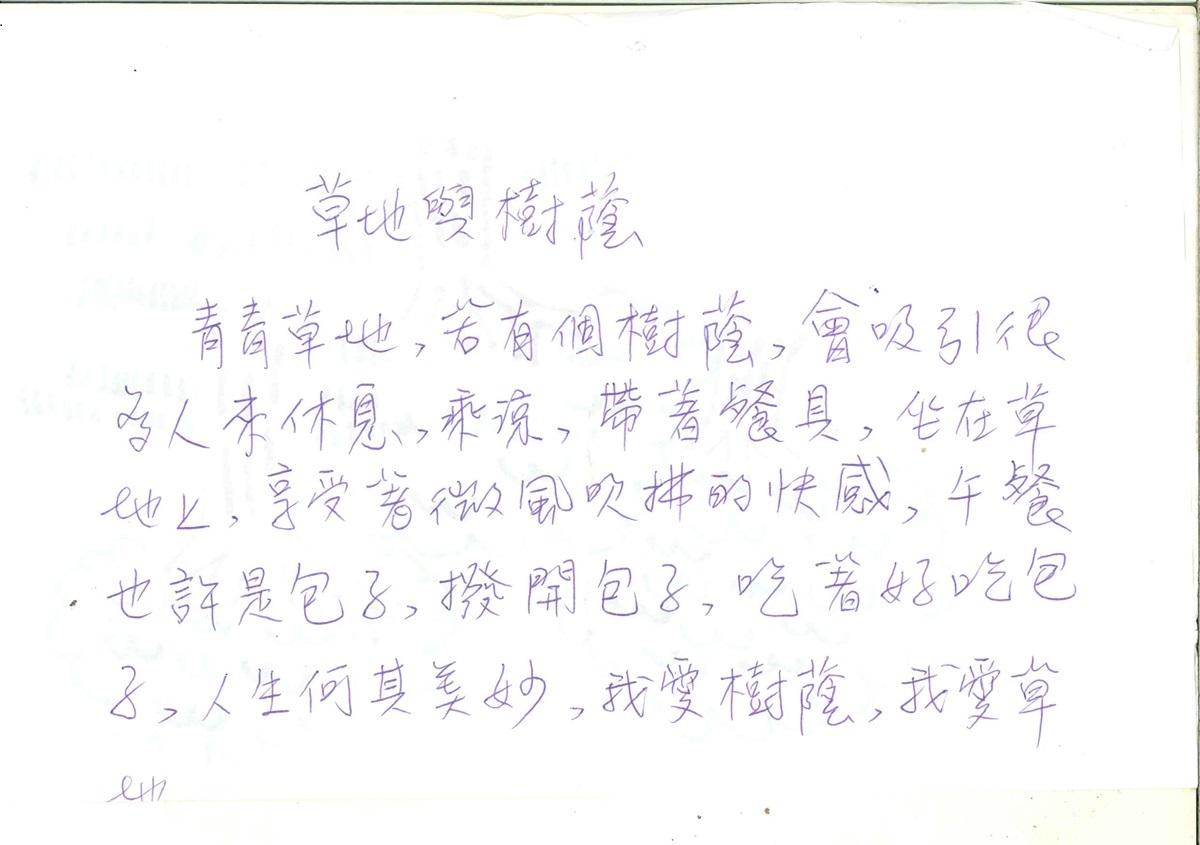 草地與樹蔭
青青草地,若有個樹蔭,會吸引很
多人來休息、,乘涼,帶著餐具,坐在草
地上,享受著微風吹拂的快感,午餐
也許是包子,撥開包子,吃著好吃包
子,人生何其美妙,我愛樹蔭,我愛草
地